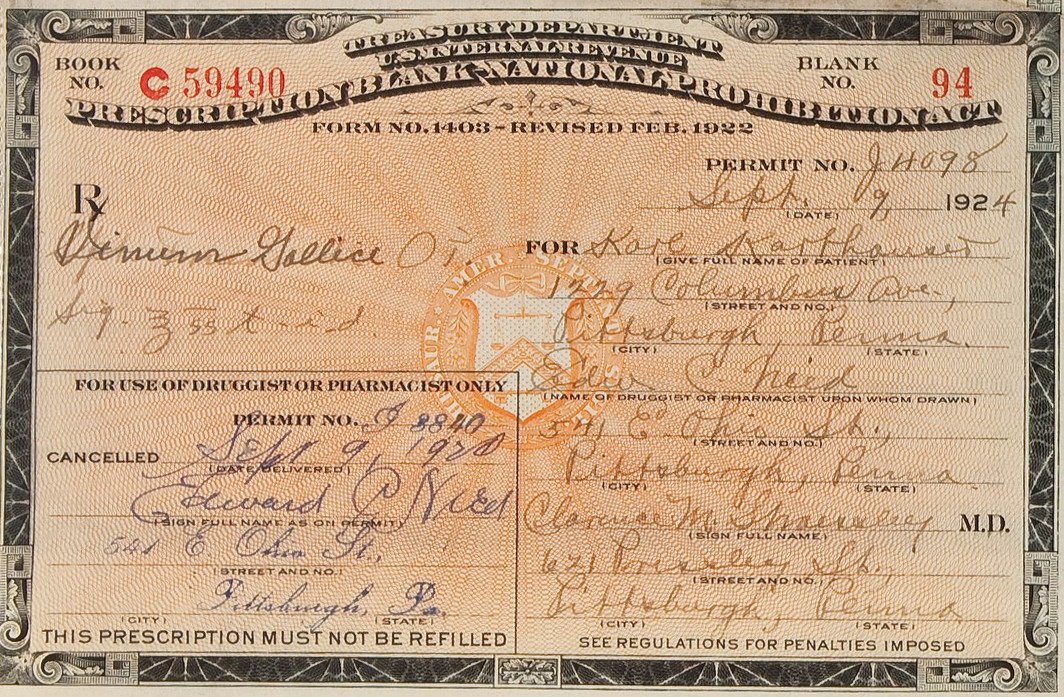 TREASURY DEPARTMENT
U.S. INTERNAL REVENUE
BOOK NO. C 59490
BLANK NO. 94
PRESCRIPTION BLANK-NATIONAL PROHIBITION ACT
FORM NO. 1403-REVISED FEB. 1922
PERMIT NO. J4098
Sept. 9, 1924
(DATE)
℞
Vinum Gallice
Sig. ℥ss t-i-d
FOR Karl Karthauser
(GIVE FULL NAME OF PATIENT)
1229 Columbus Ave,
(STREET AND NO.)
Pittsburgh, Penna.
(CITY) (STATE)
C Nied
(NAME OF DRUGGIST OR PHARMACIST UPON WHOM DRAWN)
541 E. Ohio St.,
(STREET AND NO.)
Pittsburgh, Penna.
(CITY) (STATE)
Clarence M. M.D.
(SIGN FULL NAME)
621 St.,
(STREET AND NO.)
Pittsburgh, Penna.
(CITY) (STATE)
SEE REGULATIONS FOR PENALTIES IMPOSED
FOR USE OF DRUGGIST OR PHARMACIST ONLY
PERMIT NO. 8840
CANCELLED Sept 9, 192
(DATE DELIVERED)
Edward C Nied
(SIGN FULL NAME AS ON PERMIT)
541 E Ohio St,
(STREET AND NO.)
Pittsburgh, Pa.
(CITY) (STATE)
THIS PRESCRIPTION MUST NOT BE REFILLED
THESAUR. AMER. SEPTENT. SIGIL.